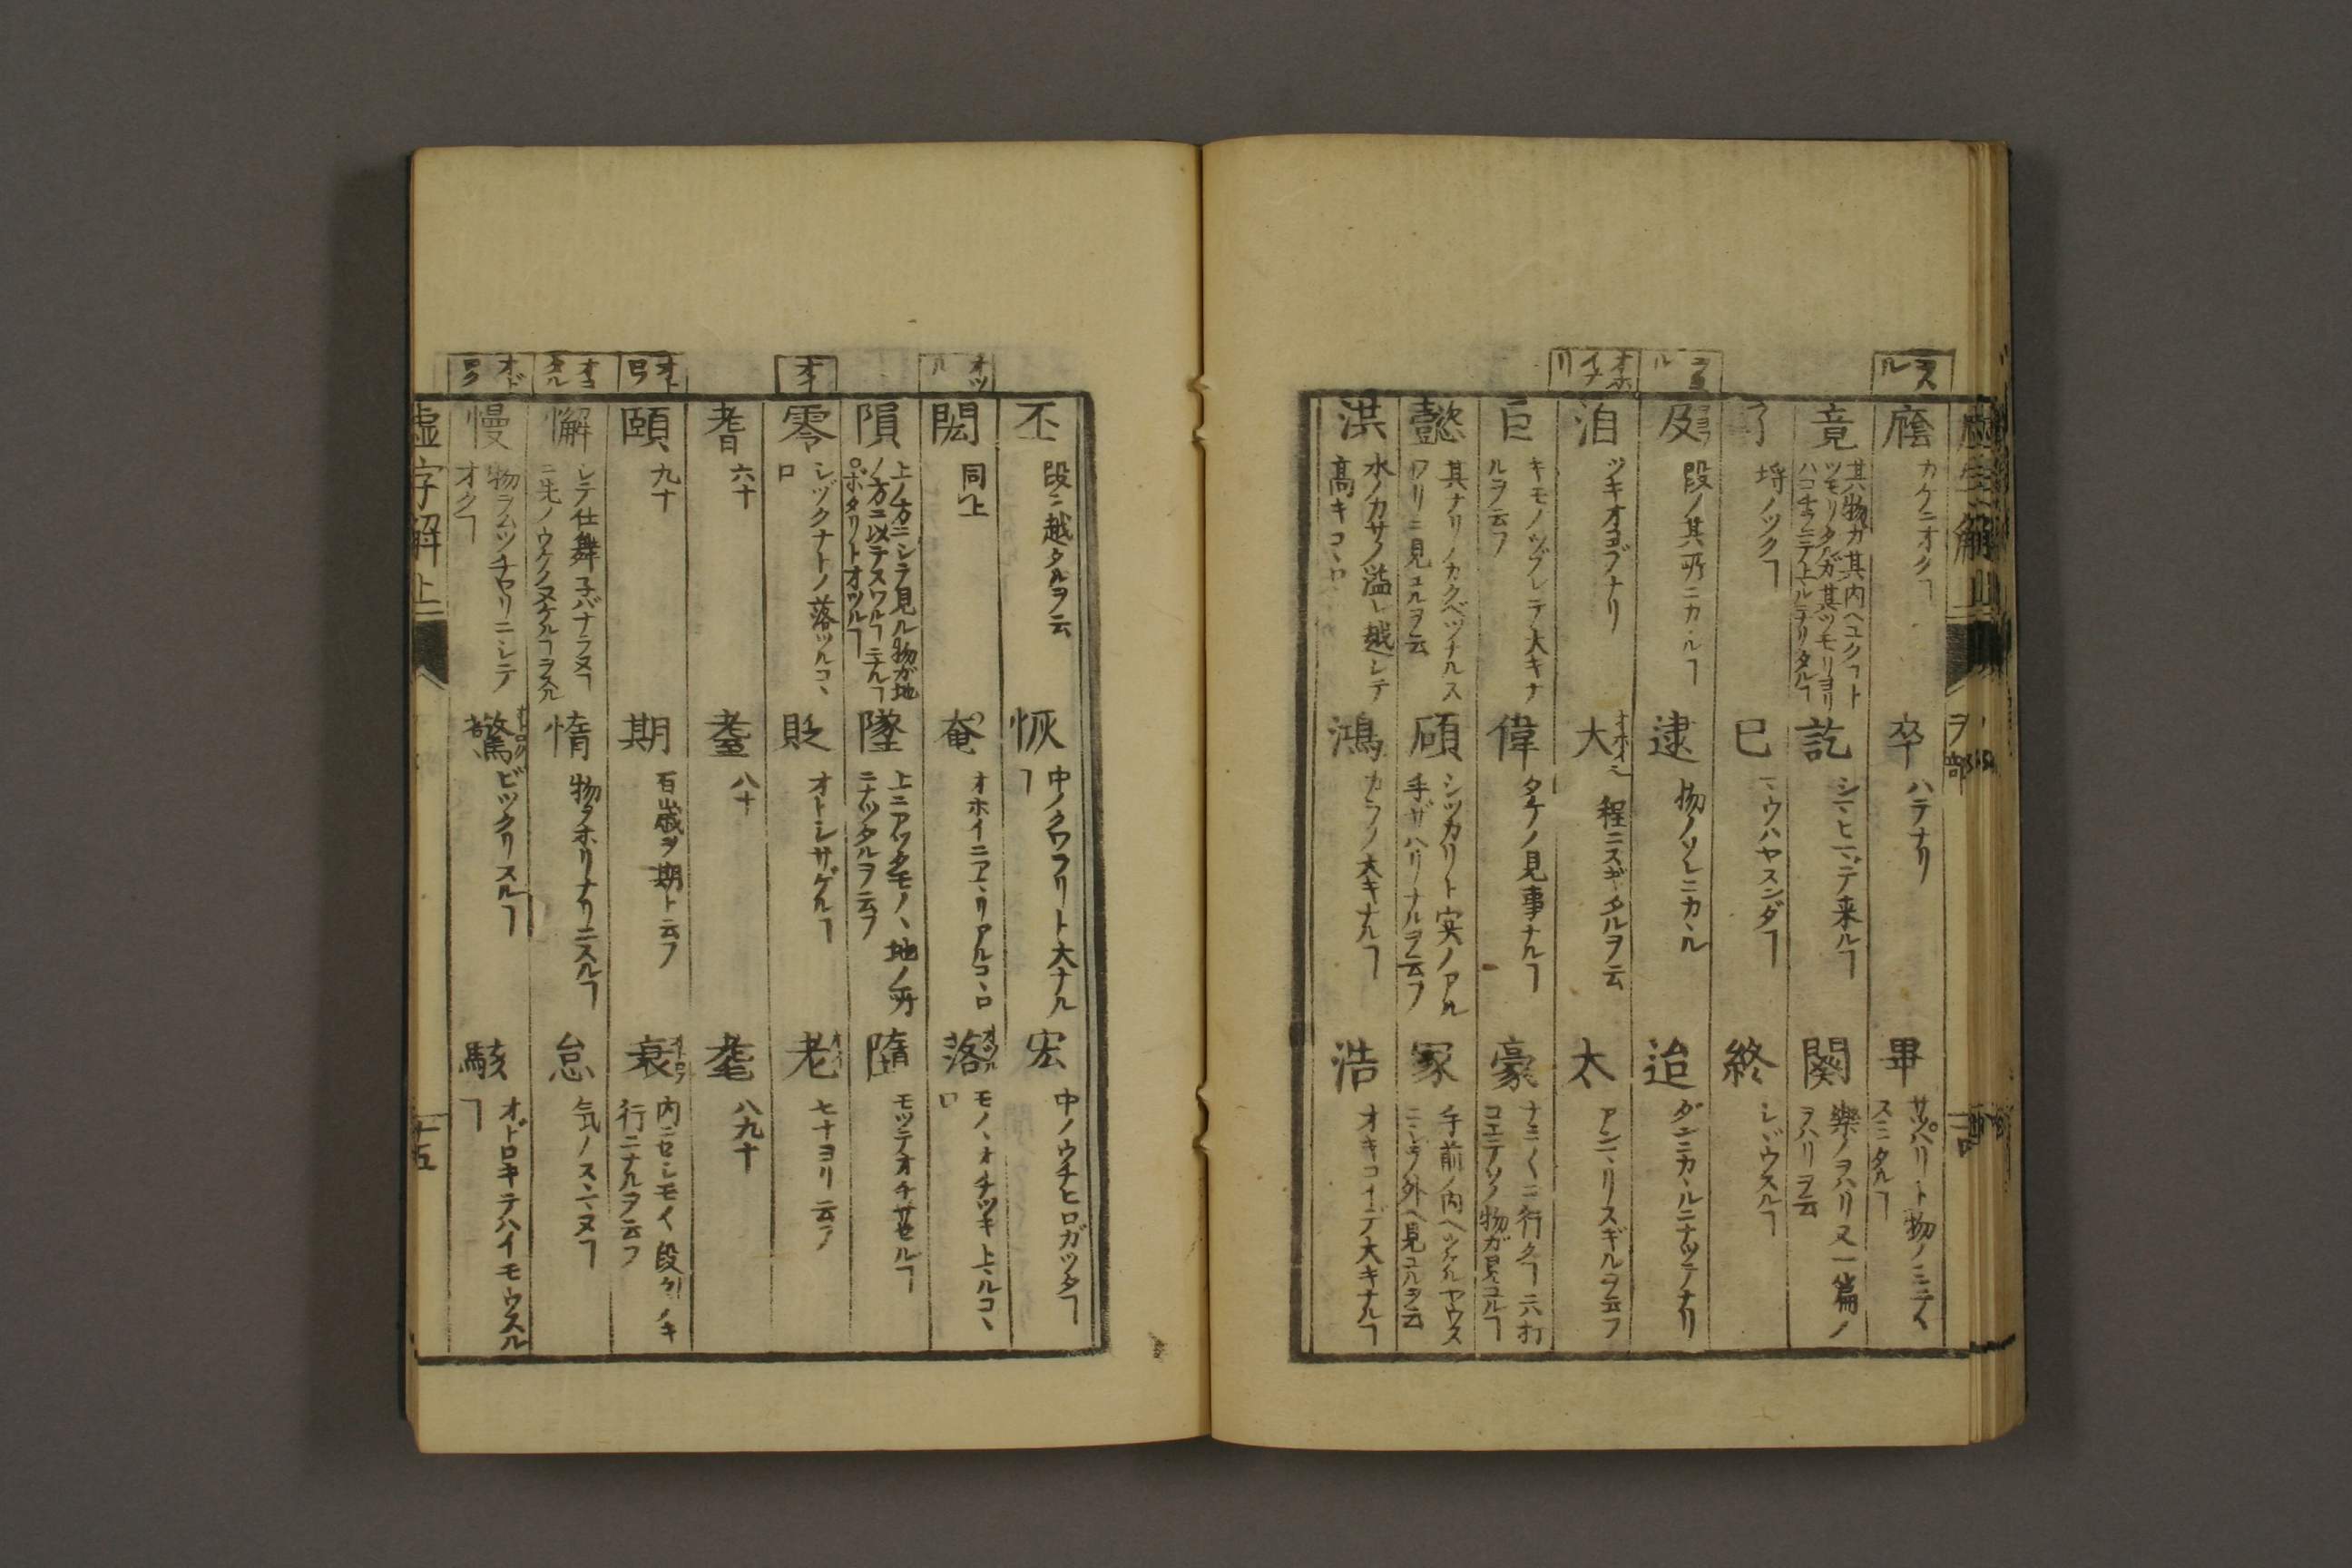 ヲ部
廕 カケニオクヿ
卒 ハテナリ
畢 サツハリト物ノ
スミタルヿ
竟 其物カ其内ヘユクヿト
ツモリタルガ其ツモリヨリ
訖 シマヒマデ来ルヿ
闋 樂ノヲハリ又一篇ノ
ヲハリヲ云
了 埒ノツクヿ
已 マウハヤスンダヿ
終 シマウスルヿ
及 段ノ其所ニカヽルヿ
逮 物ノソレニカヽル
迨 ダンニカヽルニナツテナリ
洎 ツキオヨブナリ
大 程ニスギタルヲ云
太 アンマリスギルヲ云フ
巨 キモノツブレテ大キナ
ルヲ云フ
偉 タケノ見事ナルヿ
豪 ナミ〳〵ニ行クヿニハ打
コエテソノ物ガ見ユルヿ
懿 其ナリノカクベツナルス
ワリニ見ユルヲ云
碩 シツカリト実ノアル
手ザハリナルヲ云フ
冢 手前ノ内ヘツケルヤウス
ニシテ外ヘ見ユルヲ云
洪 水ノカサノ溢レ越シテ
高キコヽロ
鴻 カラノ大キナルヿ
浩 オキコイデ大キナルヿ
丕 段ニ越タルヲ云
恢 中ノクワラリト大ナル
ヿ
宏 中ノウチヒロガツタヿ
閎 同上
奄 オホイニアマリアルコヽロ
落 モノヽオチツキ上ルコヽ
ロ
隕 上ノ方ニシテ見ル物ガ地
ノ方ニ以テスワルヿニナルヿ
ボタリトオツルヿ
墜 上ニアツタモノヽ地ノ所
ニナツタルヲ云フ
墮 モツテオチサセルヿ
零 シヅクナトノ落ツルコヽ
ロ
貶 オトシサゲルヿ
老 七十ヨリ云フ
耆 六十
耋 八十
耄 八九十
頤 九十
期 百歳ヲ期ト云フ
衰 内ニセシモイ段々ノキ
行ニナルヲ云フ
懈 シテ仕舞子バナラヌヿ
ニ先ノウケノヌケルヿヲスル
惰 物ヲホリナリニスルヿ
怠 気ノスヽマヌヿ
慢 物ヲムツチヤリニシテ
オクヿ
驚 ビツクリスルヿ
駭 オドロキテハイモウスル
ヿ
虚字解上
十五